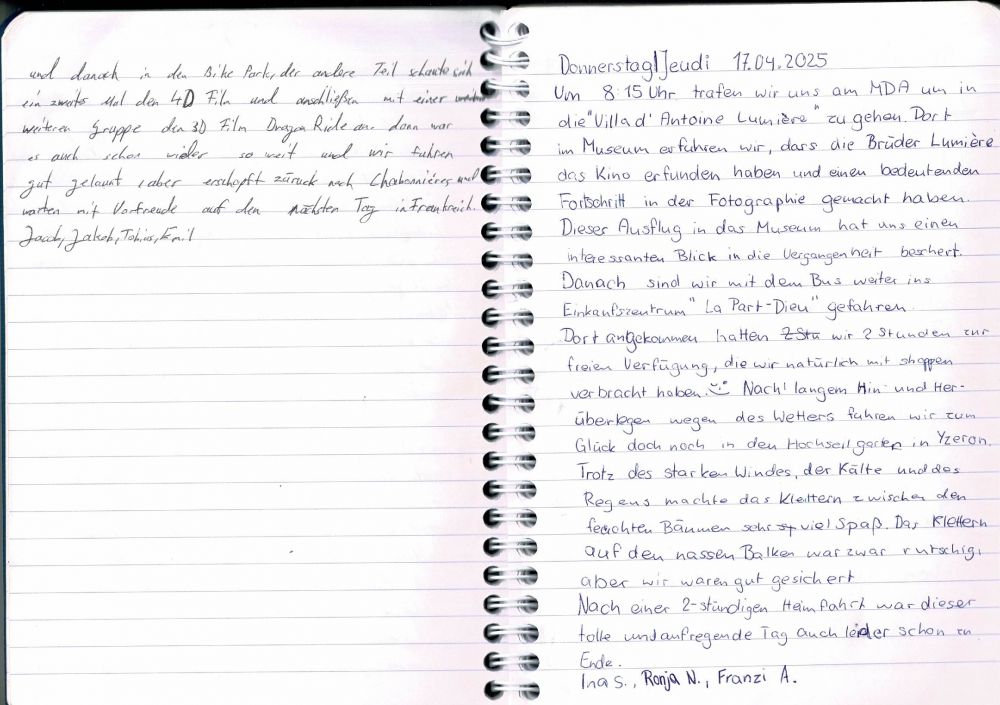 und danach in den Bike Park, der andere Teil schaute sich
ein zweites Mal den 4D Film und anschließen mit einer
weiteren Gruppe den 3D Film Dragon Ride an. dann war
es auch schon wieder so weit und wir fuhren
gut gelaunt, aber erschöpft zurück nach Charbonnières und
warten mit Vorfreude auf den nächsten Tag in Frankreich.
Jacob, Jakob, Tobias, Emil
Donnerstag/Jeudi 17.04.2025
Um 8:15 Uhr trafen wir uns am MDA um in
die "Villa d' Antoine Lumière" zu gehen. Dort
im Museum erfuhren wir, dass die Brüder Lumière
das Kino erfunden haben und einen bedeutenden
Fortschritt in der Fotographie gemacht haben.
Dieser Ausflug in das Museum hat uns einen
interessanten Blick in die Vergangenheit beschert.
Danach sind wir mit dem Bus weiter ins
Einkaufszentrum "La Part-Dieu" gefahren.
Dort angekommen hatten 2 Stu wir 2 Stunden zur
freien Verfügung, die wir natürlich mit shoppen
verbracht haben. Nach langem Hin- und Her-
überlegen wegen des Wetters fuhren wir zum
Glück doch noch in den Hochseilgarten in Yzeron.
Trotz des starken Windes, der Kälte und des
Regens machte das Klettern zwischen den
feuchten Bäumen sehr viel Spaß. Das Klettern
auf den nassen Balken war zwar rutschig,
aber wir waren gut gesichert
Nach einer 2-stündigen Heimfahrt war dieser
tolle und aufregende Tag auch leider schon zu
Ende.
Ina S., Ronja N., Franzi A.